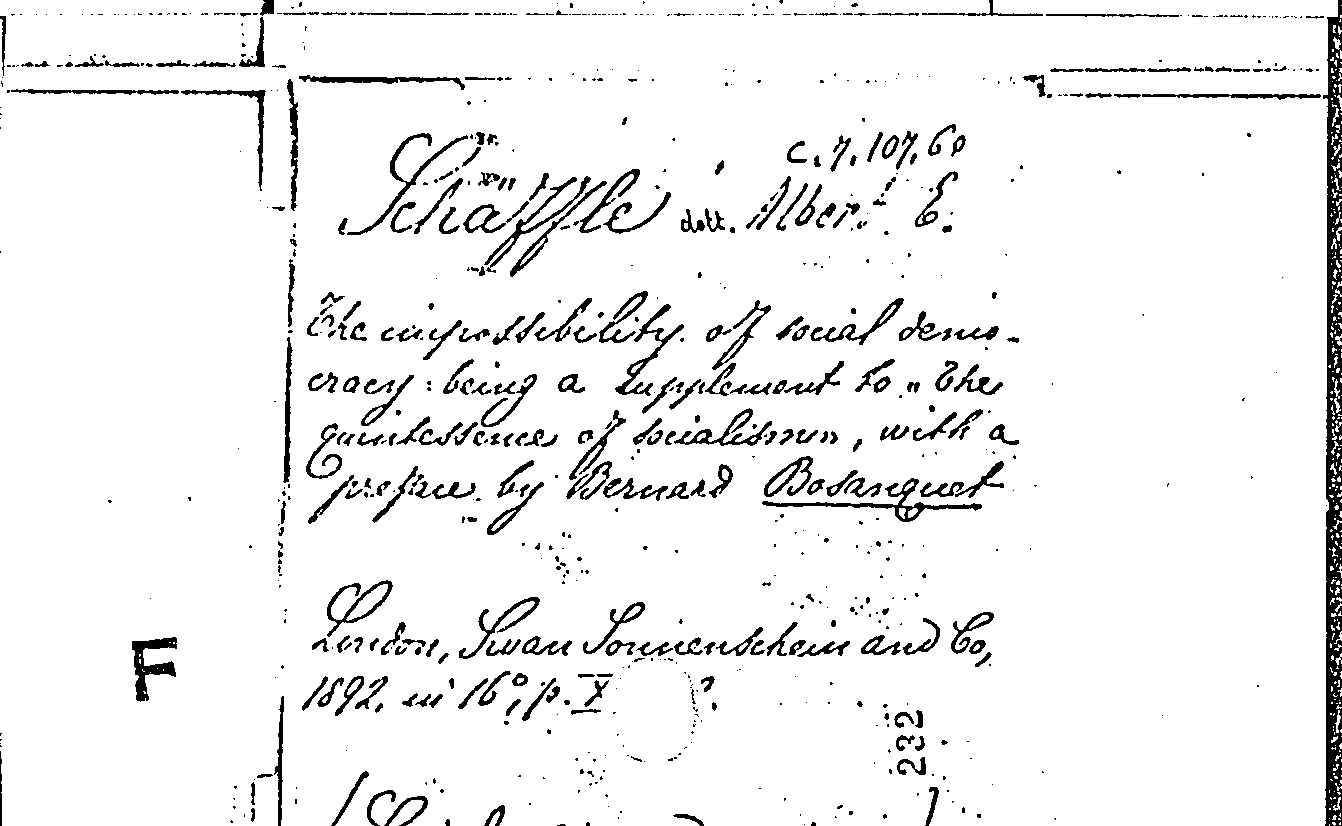 c.7.107.60
Schäffle dott. Albert E.
The impossibility of social demo-
cracy: being a supplement to „The
quintessence of socialism„, with a
preface by Bernard Bosanquet
London, Swan Sonnenschein and Co,
1892. in 16°, p. X
F
232